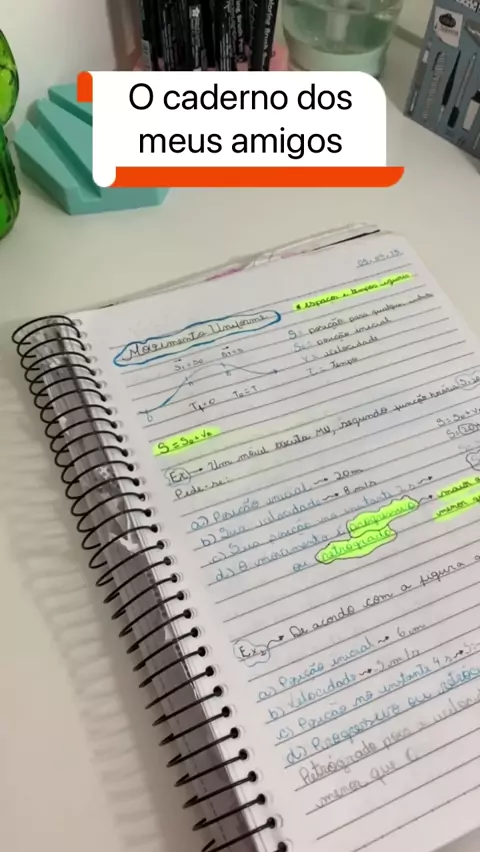 O caderno dos
meus amigos
* espaços e tempos iguais
Movimento Uniforme
S = posição para qualquer
S₀ = posição inicial
V = velocidade
T = Tempo
S = S₀ + V
Ex → Um móvel executa MU, segundo função horária
Pede-se:
a) Posição inicial → 20m
b) Sua velocidade → 8 m/s
c) Sua posição no instante 2 s →
d) O movimento é progressivo → maior
ou retrógrado menor q
Ex₂ → De acordo com a figura a
a) Posição inicial → 6m
b) Velocidade → 2 m/s
c) Posição no instante 4 s →
d) Progressivo ou retróg
Retrógrado pois a velocid
menor que 0